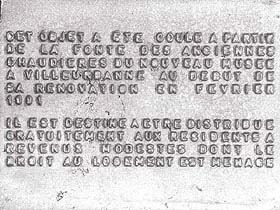 CET OBJET A ETE COULE A PARTIR
DE LA FONTE DES ANCIENNES
CHAUDIERES DU NOUVEAU MUSEE
A VILLEURBANNE AU DEBUT DE
SA RENOVATION EN FEVRIER
1991
IL EST DESTINE A ETRE DISTRIBUE
GRATUITEMENT AUX RESIDENTS A
REVENUS MODESTES DONT LE
DROIT AU LOGEMENT EST MENACE